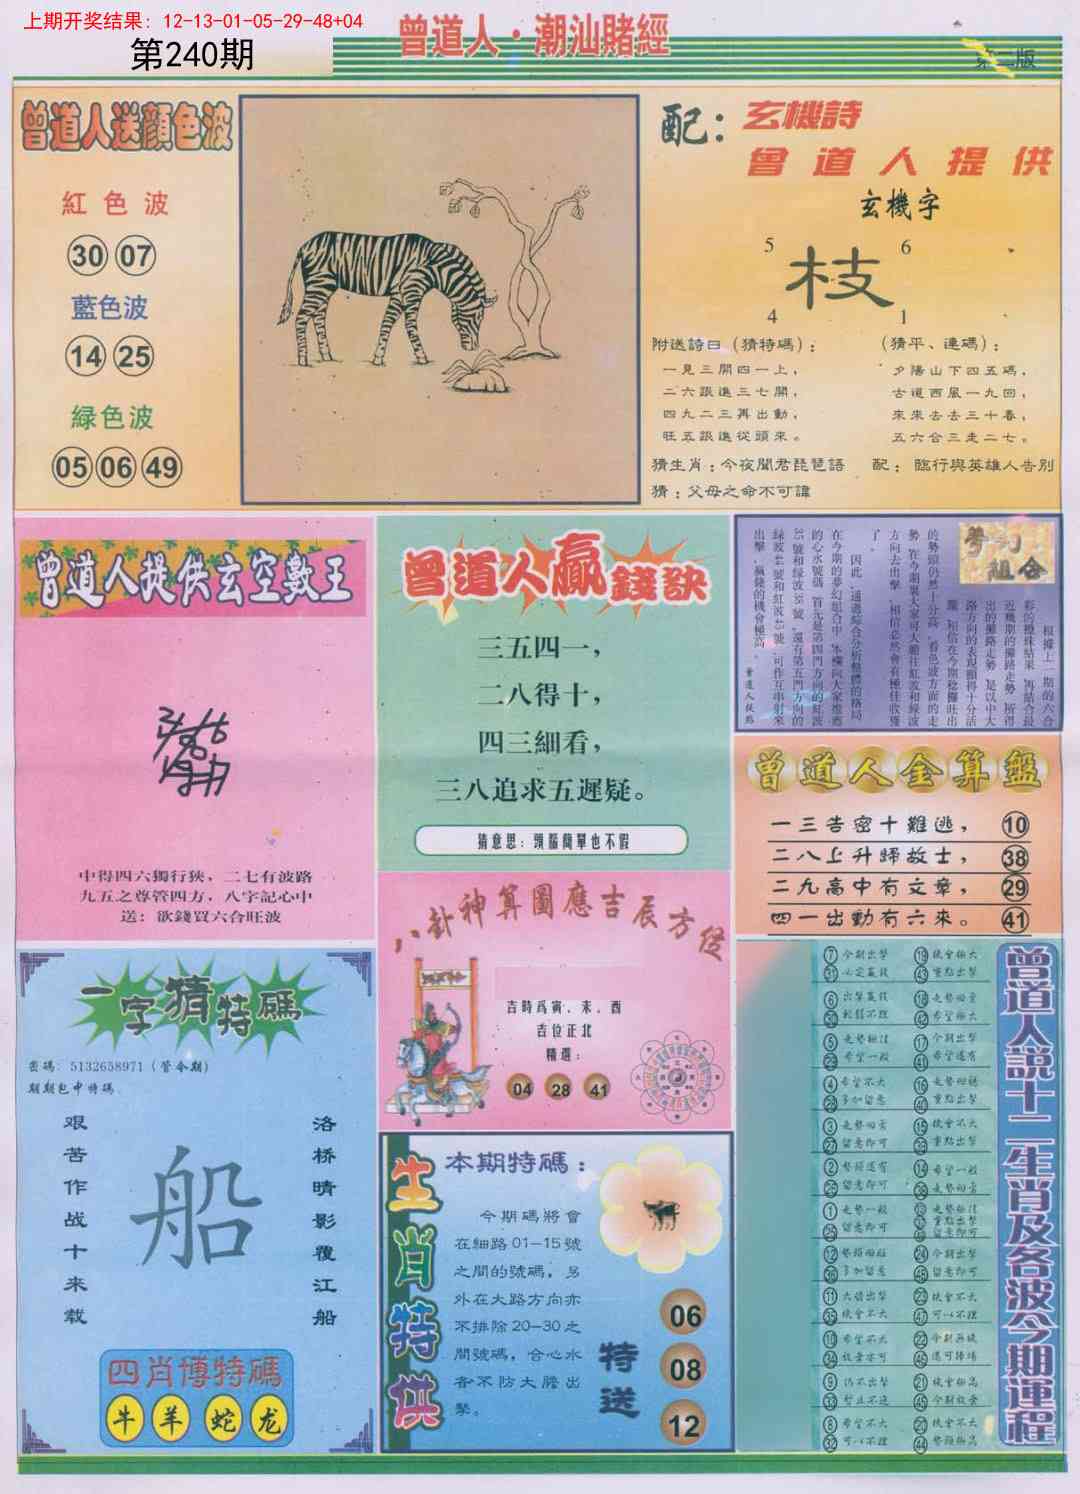 上期开奖结果：12-13-01-05-29-48+04
第240期
曾道人·潮汕賭經
第二版
曾道人送顔色波
紅色波
30 07
藍色波
14 25
緑色波
05 06 49
配：
玄機詩
曾道人提供
玄機字
5 6
枝
4 1
附送詩曰（猜特碼）：
一見三開四一上，
二六跟進三七開，
四九二三再出動，
旺五跟進從頭來。
（猜平、連碼）：
夕陽山下四五碼，
古道西風一九回，
來來去去三十春，
五六合三走二七。
猜生肖：今夜聞君琵琶語
配：臨行與英雄人告别
猜：父母之命不可諱
曾道人提供玄空數王
中得四六獨行狹，二七有波路
九五之尊管四方，八字記心中
送：欲錢買六合旺波
曾道人贏錢訣
三五四一，
二八得十，
四三細看，
三八追求五遲疑。
猜意思：頭腦簡單也不假
夢幻組合
根據上一期的六合
彩的攪珠結果，再結合最
近幾期的攤路走勢，所得
出的攤路走勢，是以中大
路方向的表現顯得十分活
躍，相信在今期稳攤旺出
的勢頭仍然十分高，看色波方面的走
勢，在今期裏大家可大膽往紅波和緑波
方向去出擊，相信必然會有極佳收獲
了。
因此，通過綜合分析整體的格局
在今期的夢幻組合中，本欄向大家推薦
的心水號碼，首先是第四門方向的紅波
35號和緑波38號，還有第五門方向的
緑波44號和紅波45號，可作互串射來
出擊，贏錢的機會極高。
曾道人金算盤
一三告密十難逃， 10
二八上升歸故士， 38
二九高中有文章， 29
四一出動有六來。 41
八卦神算圖應吉辰方位
吉時爲寅、未、酉
吉位正北
精選：
04 28 41
一字猜特碼
密碼：5132658971（管今期）
期期包中特碼
艰苦作战十来载
船
洛桥晴影覆江船
四肖博特碼
牛 羊 蛇 龙
生肖特供
本期特碼：
今期碼將會
在細路01—15號
之間的號碼，另
外在大路方向亦
不排除20—30之
間號碼，合心水
者不防大膽出
擊。
特送
06
08
12
曾道人説十二生肖及各波今期運程
7 今期出擊
31 必定贏錢
6 出擊贏錢
30 輕鬆不理
5 走勢極佳
29 希望一般
4 希望不大
28 多加留意
3 走勢回霄
27 留意即可
2 勢頭還有
26 留意即可
1 走勢一般
25 留意即可
12 勢頭回旺
36 多加留意
11 大膽出擊
35 機會不大
10 希望不大
34 放棄亦可
9 仍不出擊
33 暫且不追
8 希望不大
32 可以不理
19 機會極大
43 重點出擊
18 走勢回霄
42 希望極大
17 今期出擊
41 希望還有
16 走勢回穩
40 重點出擊
15 機會不大
39 重點出擊
14 希望一般
38 走勢回霄
13 走勢極佳
37 重點出擊
49 留意即可
24 今期出擊
48 留意即可
23 機會不大
47 可以不理
22 今期無緣
46 還可捧場
21 機會極高
45 今期放棄
20 機會不大
44 勢頭極高